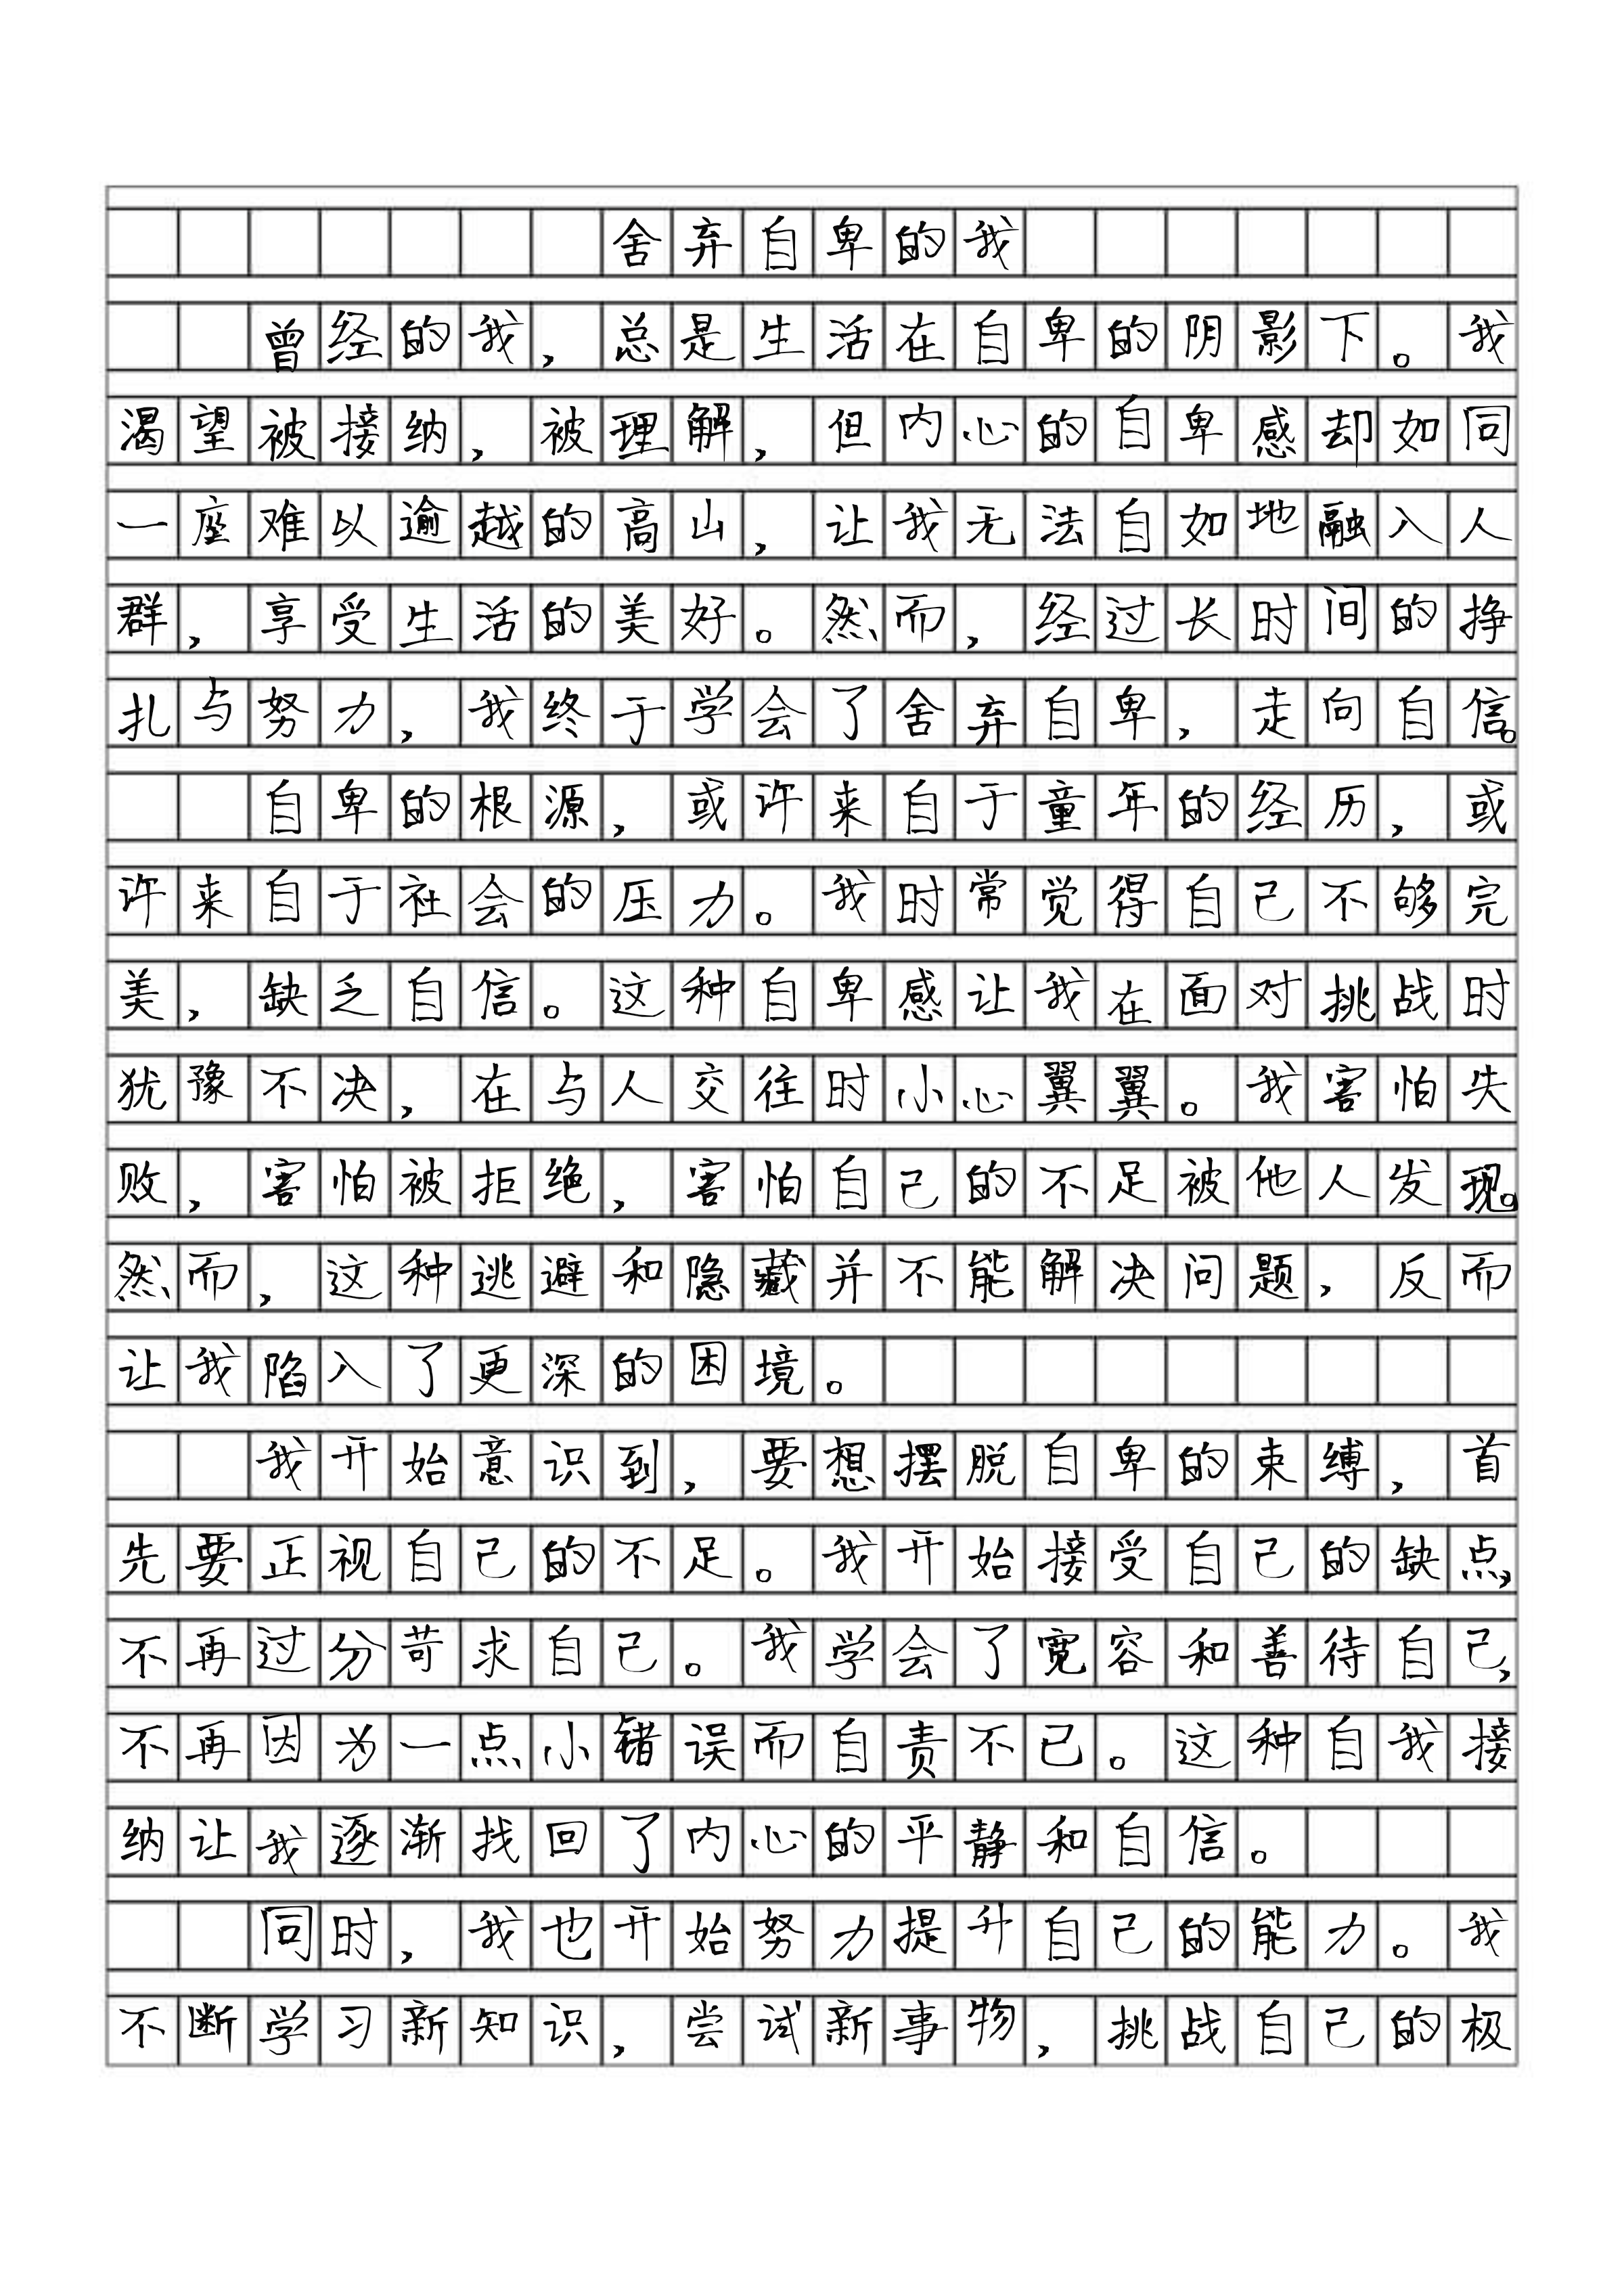 舍弃自卑的我
曾经的我，总是生活在自卑的阴影下。我
渴望被接纳，被理解，但内心的自卑感却如同
一座难以逾越的高山，让我无法自如地融入人
群，享受生活的美好。然而，经过长时间的挣
扎与努力，我终于学会了舍弃自卑，走向自信。
自卑的根源，或许来自于童年的经历，或
许来自于社会的压力。我时常觉得自己不够完
美，缺乏自信。这种自卑感让我在面对挑战时
犹豫不决，在与人交往时小心翼翼。我害怕失
败，害怕被拒绝，害怕自己的不足被他人发现。
然而，这种逃避和隐藏并不能解决问题，反而
让我陷入了更深的困境。
我开始意识到，要想摆脱自卑的束缚，首
先要正视自己的不足。我开始接受自己的缺点，
不再过分苛求自己。我学会了宽容和善待自己，
不再因为一点小错误而自责不已。这种自我接
纳让我逐渐找回了内心的平静和自信。
同时，我也开始努力提升自己的能力。我
不断学习新知识，尝试新事物，挑战自己的极